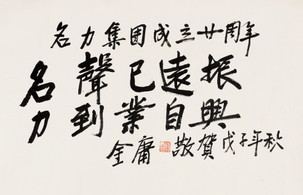 名力集团成立廿周年
名聲已遠振
力到業自興
金庸 敬賀 戊子年秋